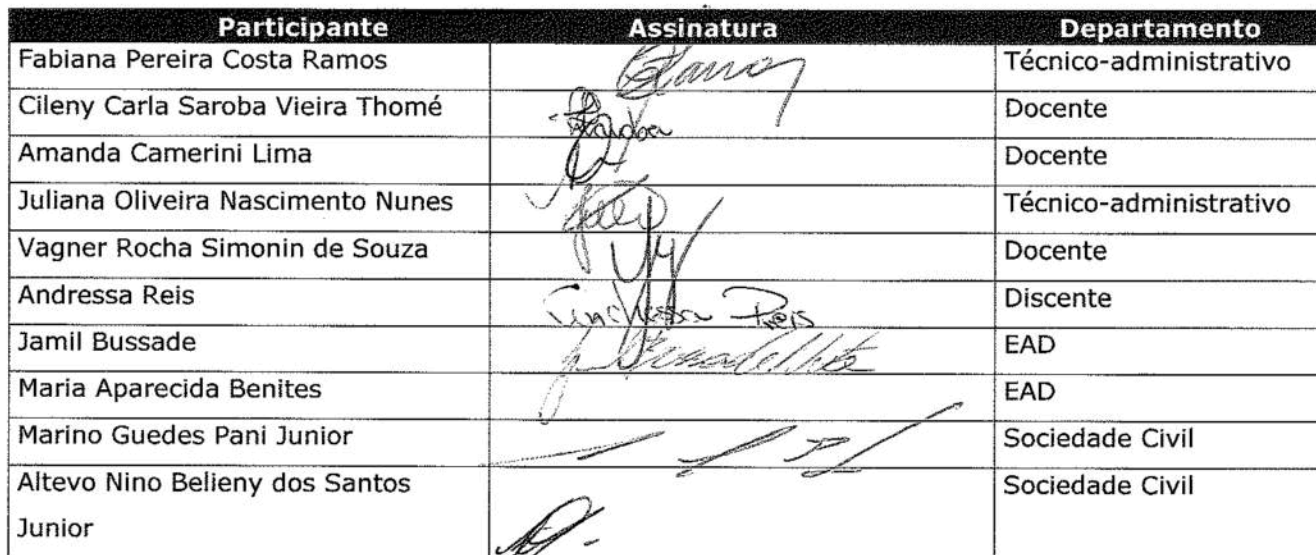 Participante Assinatura Departamento
Fabiana Pereira Costa Ramos Técnico-administrativo
Cileny Carla Saroba Vieira Thomé Docente
Amanda Camerini Lima Docente
Juliana Oliveira Nascimento Nunes Técnico-administrativo
Vagner Rocha Simonin de Souza Docente
Andressa Reis Andressa Reis Discente
Jamil Bussade EAD
Maria Aparecida Benites EAD
Marino Guedes Pani Junior Sociedade Civil
Altevo Nino Belieny dos Santos Sociedade Civil
Junior